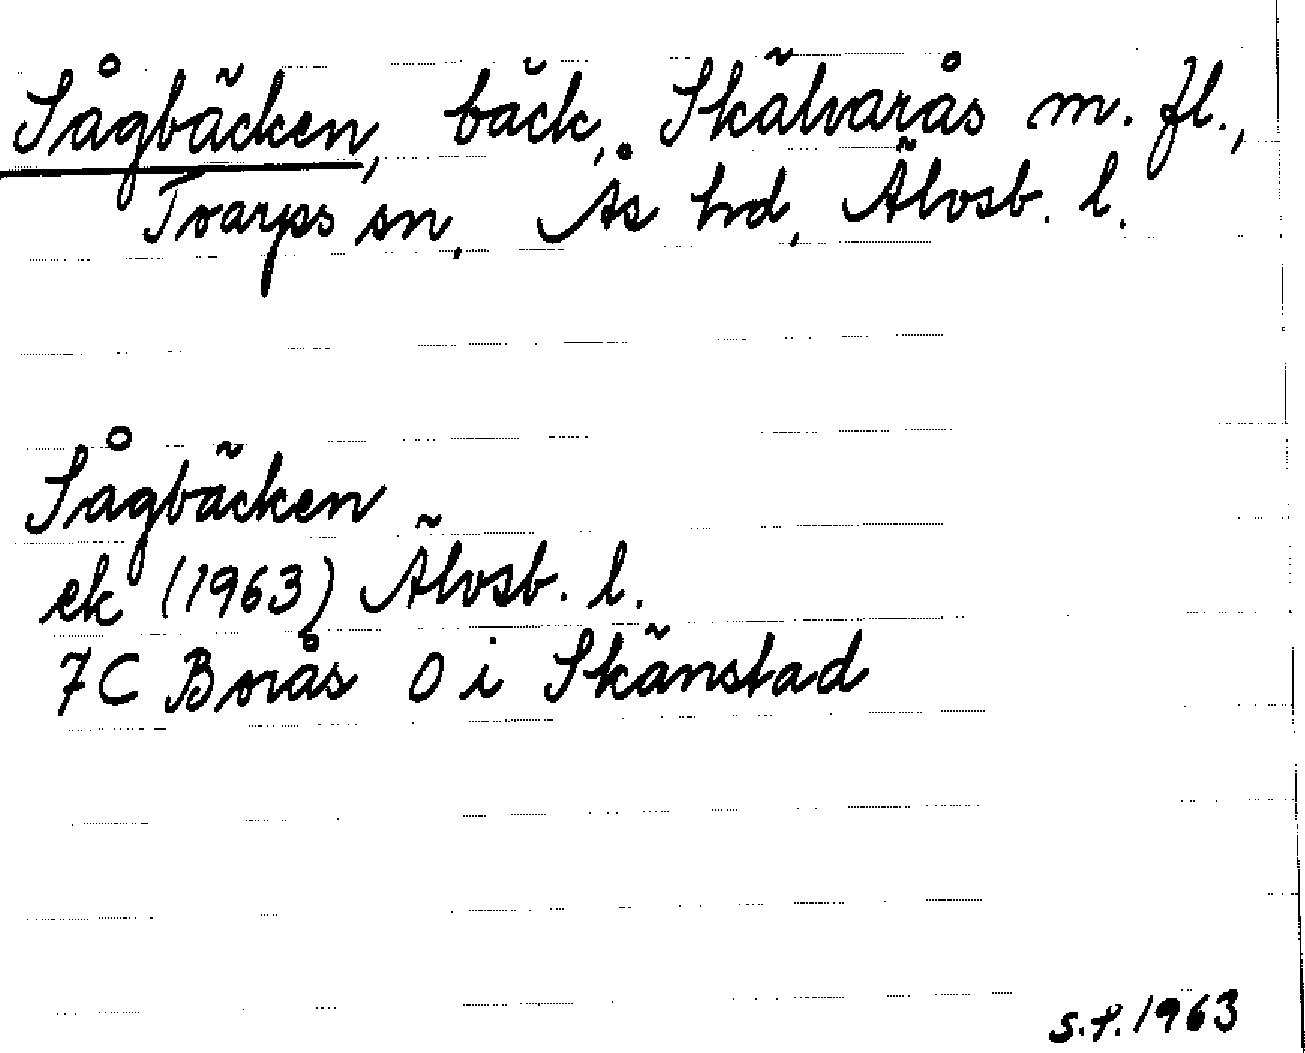 Sågbäcken, bäck, Skälvarås m. fl.,
Tvarps sn, Ås hd, Älvsb. l.
Sågbäcken
ek (1963) Älvsb. l.
7C Borås 0 i Skänstad
S.F. 1963